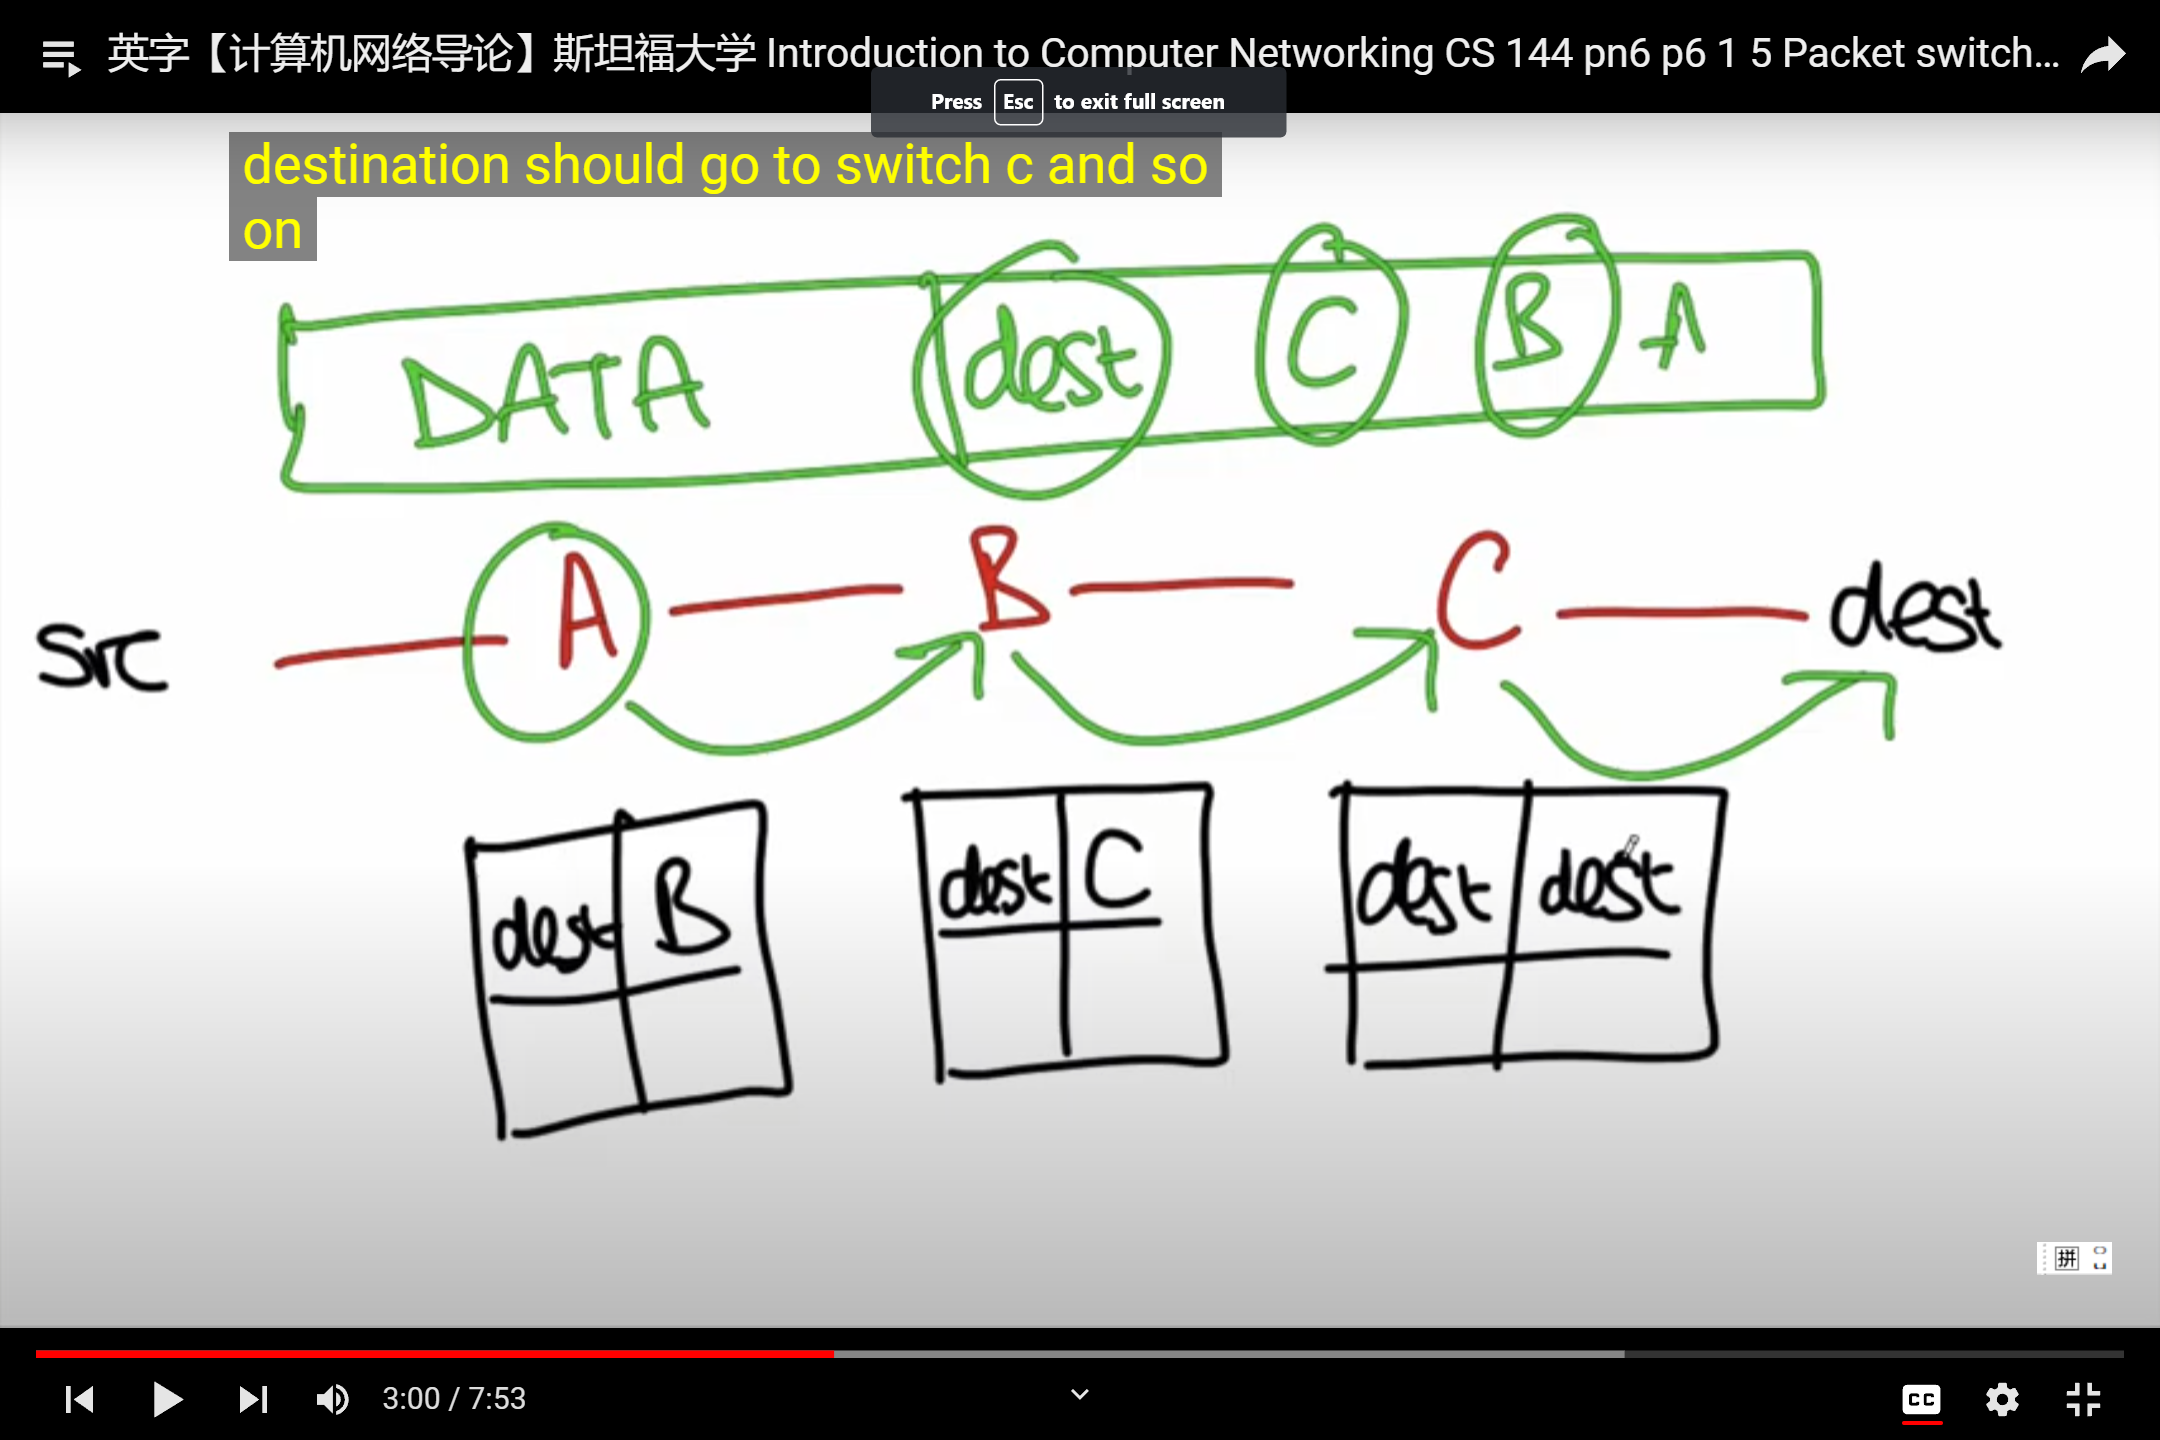 英字【计算机网络导论】斯坦福大学 Introduction to Computer Networking CS 144 pn6 p6 1 5 Packet switch...
Press Esc to exit full screen
destination should go to switch c and so
on
DATA dest C B A
src A B C dest
dest B dest C dest dest
拼
3:00 / 7:53
CC